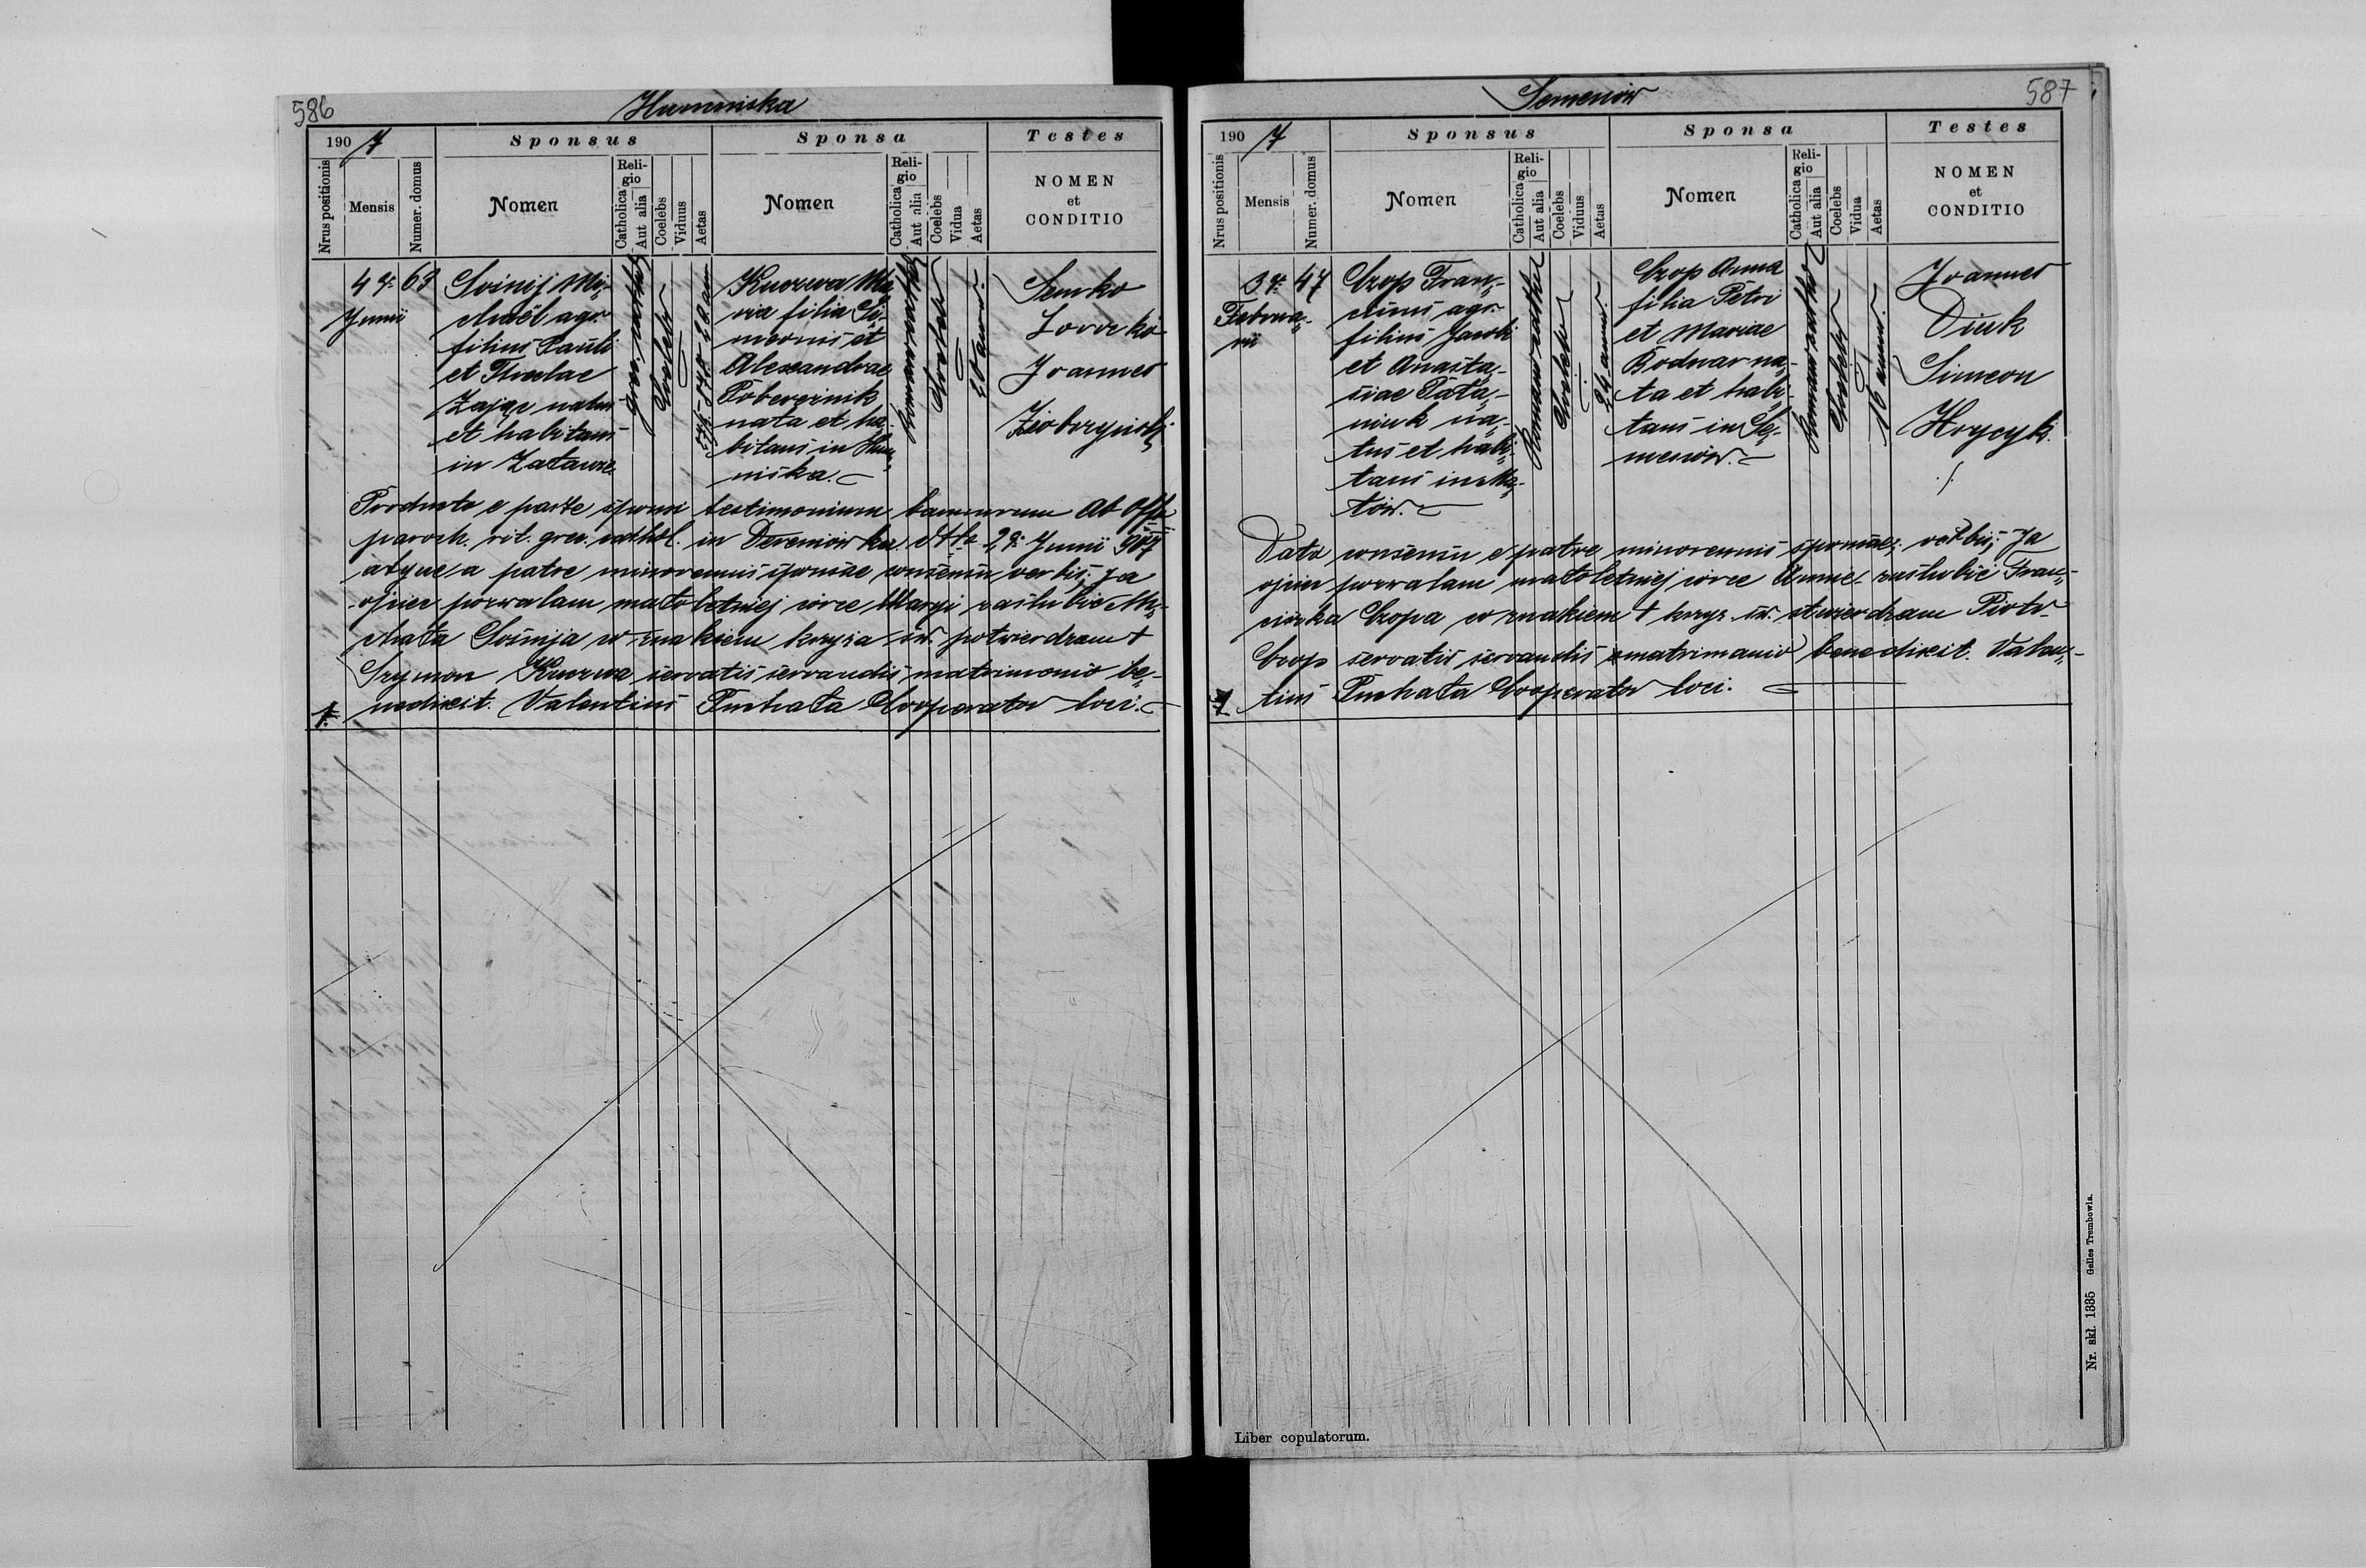 586
Humniska
1907
Sponsus
Sponsa
Testes
Nrus positionis
Mensis
Numer. domus
Nomen
Religio
Catholica
Aut alia
Coelebs
Viduus
Aetas
Nomen
Religio
Catholica
Aut alia
Coelebs
Vidua
Aetas
NOMEN
et
CONDITIO
4
Junii
Mi-
chaël agr.
filius Pauli
et Theclae
Zając natus
et habitans
in Załawie
Graec. cathol.
Coelebs
Ma-
ria filia Si-
meonis et
Alexandrae
Pobereznik
nata et ha-
bitans in Hum-
niska.
Roman. cathol.
Coelebs
20 annor.
Semko
Joannes
Producto e parte sponsi testimonium bannorum ab Offo
paroch. rit. graec. cathol. in Dereniówka ddto 2. Junii 907
atque a patre minorennis sponsae consensu verbis: Ja
ojciec pozwalam małoletniej córce Maryi zaślubić Mi-
chała w znakiem krzyża św. potwierdzam +
Szymon servatis servandis matrimonio be-
nedixit. Valentius Puchała Cooperator loci.
1.
587
Semenów
1907
Sponsus
Sponsa
Testes
Nrus positionis
Mensis
Numer. domus
Nomen
Religio
Catholica
Aut alia
Coelebs
Viduus
Aetas
Nomen
Religio
Catholica
Aut alia
Coelebs
Vidua
Aetas
NOMEN
et
CONDITIO
3
47
Februa-
rii
Czop Fran-
ciscus agr.
filius Jacobi
et Anasta-
siae Pata-
niuk na-
tus et habi-
tans in Ma-
łów.
Roman. cathol.
Coelebs
24 annor.
Czop Anna
filia Petri
et Mariae
Bodnar na-
ta et habi-
tans in Se-
menów.
Roman. cathol.
Coelebs
16 annor.
Joannes
Diuk
Simeon
Hrycyk
Dato consensu e patre minorennis sponsae; verbis; Ja
ojciec pozwalam małoletniej córce Annie zaślubić Fran-
ciszka Czopa co znakiem + krzyż. św. stwierdzam Piotr
Czop servatis servandis matrimonio benedixit. Valen-
tius Puchała Cooperator loci.
1
Liber copulatorum.
Nr. skł. 1335 Gelles Trembowla.